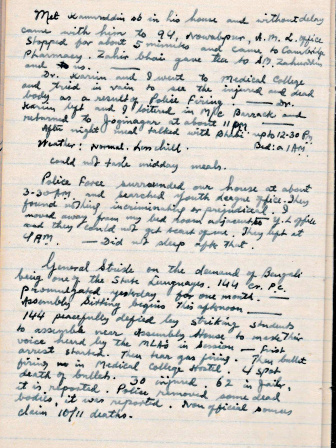 Met Kamruddin sb in his house and without delay
came with him to 94, Nawabpur, A.M.L. Office
Stopped for about 5 minutes and came to Cambridge
Pharmacy. Zahir bhai gave tea to Dr. Zakiruddin
and us.
Dr. Karim and I went to Medical College
and tried in vain to see the injured and dead
body as a result of Police Firing. — Dr.
Karim left and I loitered in M/C Barrack and
returned to Joginagar at about 11 PM.
After night meal talked with Bhabi upto 12-30 PM
Weather: Normal. Less chill. Bed: at 1 AM.
could not take midday meals.
Police Force surrounded our house at about
3-30 AM and searched youth league office. They
found nothing incriminating or prejudicial. I
moved away from my bed room adjacent to y.l. office
and they could not get scent of me. They left at
4 AM. — Did not sleep after that.
General Strike on the demand of Bengali
being one of the State Languages. 144 Cr. P.C.
promulgated yesterday for one month.
Assembly Sitting begins this afternoon
144 peacefully defied by striking students
to assemble near Assembly House to make their
voice heard by the MLAs in Session — First
arrest started. Then tear gas firing. Then bullet
firing in Medical College Hostel. 4 spot
death of bullets. 30 injured. 62 in Jails,
it is reported. Police removed some dead
bodies, it was reported. Non official sources
claim 10/11 deaths.